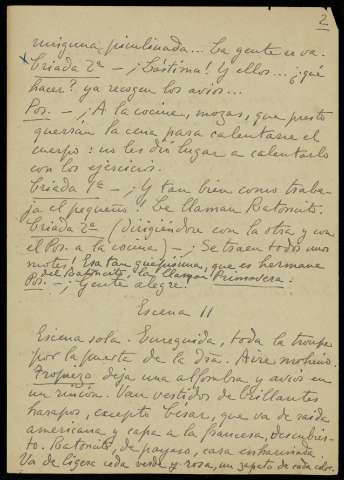 2
ninguna piculinada... La gente se va.
Criada 2ª – ¡Lástima! Y ellos... ¿qué
hacer? ya recogen los avíos...
Pos. – ¡A la cocina, mozas, que presto
querrán la cena para calentarse el
cuerpo: no les dió lugar a calentarlo
con los ejercicios.
Criada 1ª – ¡Y tan bien como traba-
ja el pequeño! Le llaman Ratoncito.
Criada 2ª (dirigiéndose con la otra y con
el Pos. a la cocina) – ¡Se traen todos unos
motes! Esa tan guapísima, que es hermana
del Ratoncito, la llaman Primavera.
Pos. – ¡Gente alegre!
Escena II
Escena sola. Enseguida, toda la troupe
por la puerta de la dcha. Aire mohino.
Tropiezo deja una alfombra y avíos en
un rincón. Van vestidos de brillantes
harapos, excepto César, que va de raída
americana y capa a la francesa, descubier-
to. Ratoncito, de payaso, cara enharinada.
Va de ligera seda verde y rosa, un zapato de cada color.